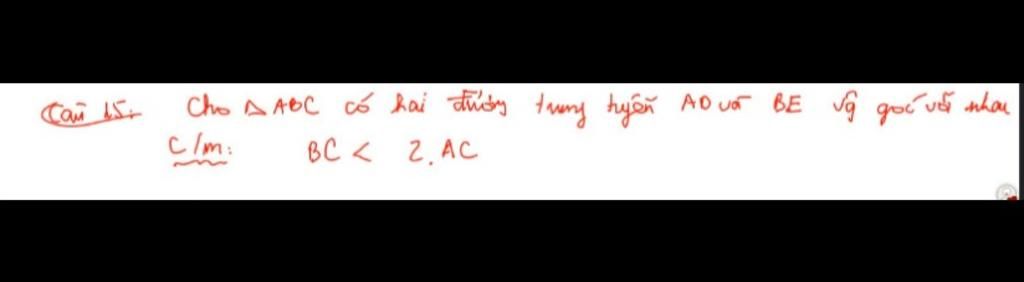 Câu 15. Cho △ABC có hai đường trung tuyến AD và BE vg góc với nhau
C/m: BC < 2.AC